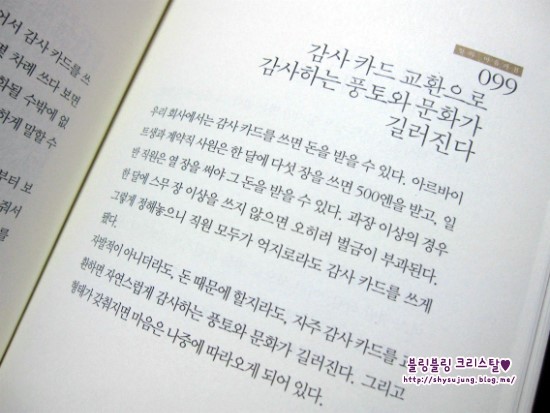 어서 감사 카드를 쓰
몇 차례 쓰다 보면
화될 수밖에 없
하게 말할 수
부터 보
춰서
를
099
감사 카드 교환으로
감사하는 풍토와 문화가
길러진다
우리 회사에서는 감사 카드를 쓰면 돈을 받을 수 있다. 아르바이
트생과 계약직 사원은 한 달에 다섯 장을 쓰면 500엔을 받고, 일
반 직원은 열 장을 써야 그 돈을 받을 수 있다. 과장 이상의 경우
한 달에 스무 장 이상을 쓰지 않으면 오히려 벌금이 부과된다.
그렇게 정해놓으니 직원 모두가 억지로라도 감사 카드를 쓰게
됐다.
자발적이 아니더라도, 돈 때문에 할지라도, 자주 감사 카드를 교
환하면 자연스럽게 감사하는 풍토와 문화가 길러진다. 그리고
형태가 갖춰지면 마음은 나중에 따라오게 되어 있다.
블링블링 크리스탈♥
http://shysujung.blog.me/